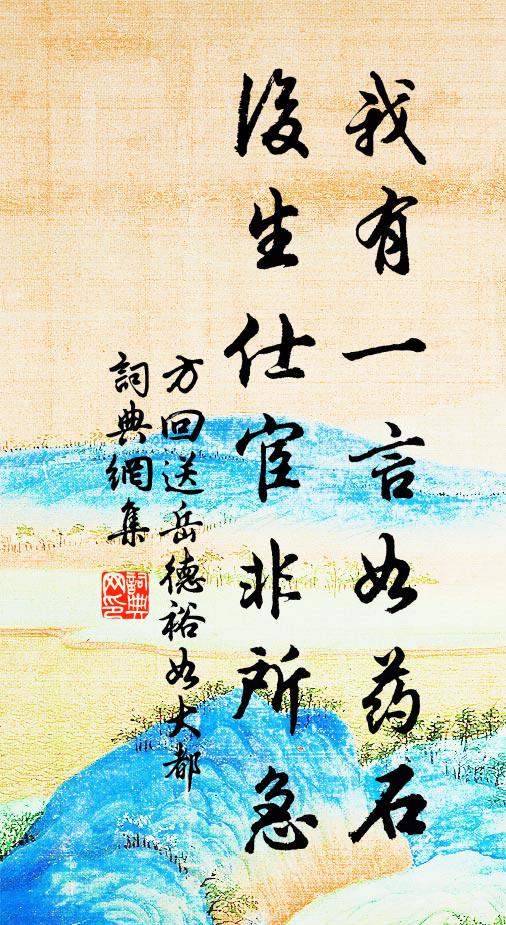 我有一言如药石
後生仕宦非所急
方回送岳德裕如大都
詞典網集
詞典网印